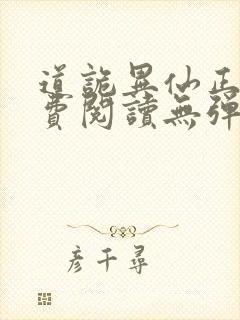 道詭異仙正
費閱讀無彈
彥千尋